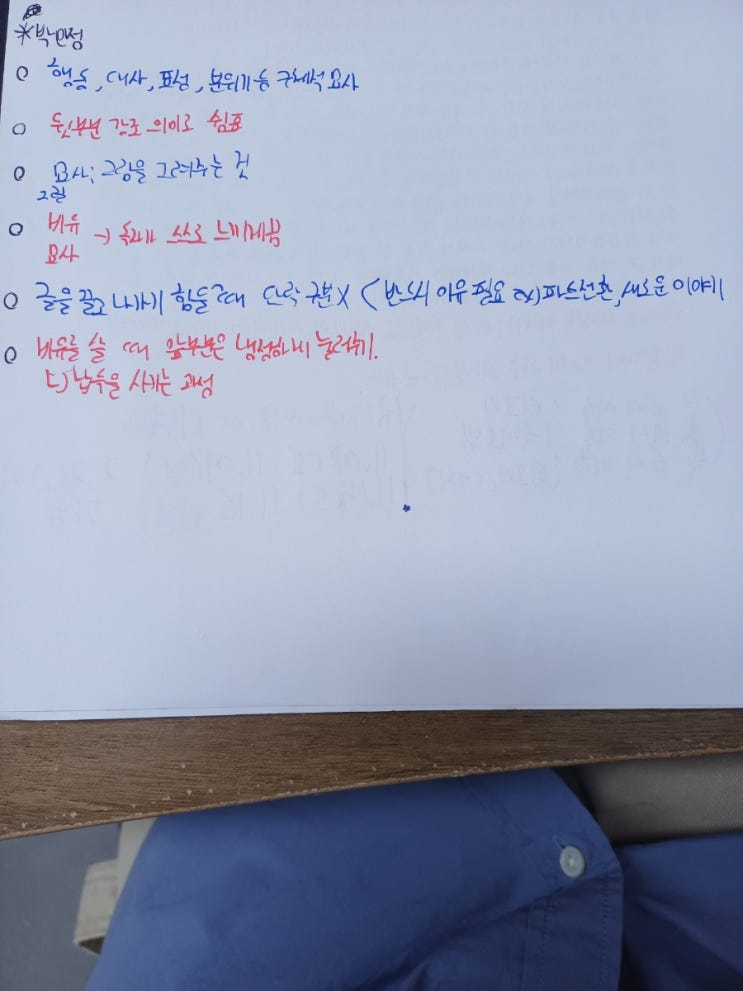 *박민정
○ 행동, 대사, 표정, 분위기 등 구체적 묘사
○ 뒷부분 강조 의미로 쉼표
○ 묘사: 그림을 그려주는 것
그림
○ 비유
묘사 → 독자가 스스로 느끼게끔
○ 글을 끌고 나가기 힘들 때 단락 구분X (반드시 이유 필요 ex)파스전환, 새로운 이야기
○ 비유를 쓸 때 앞부분은 냉정하게 눌러주기.
ㄴ) 납득을 시키는 과정